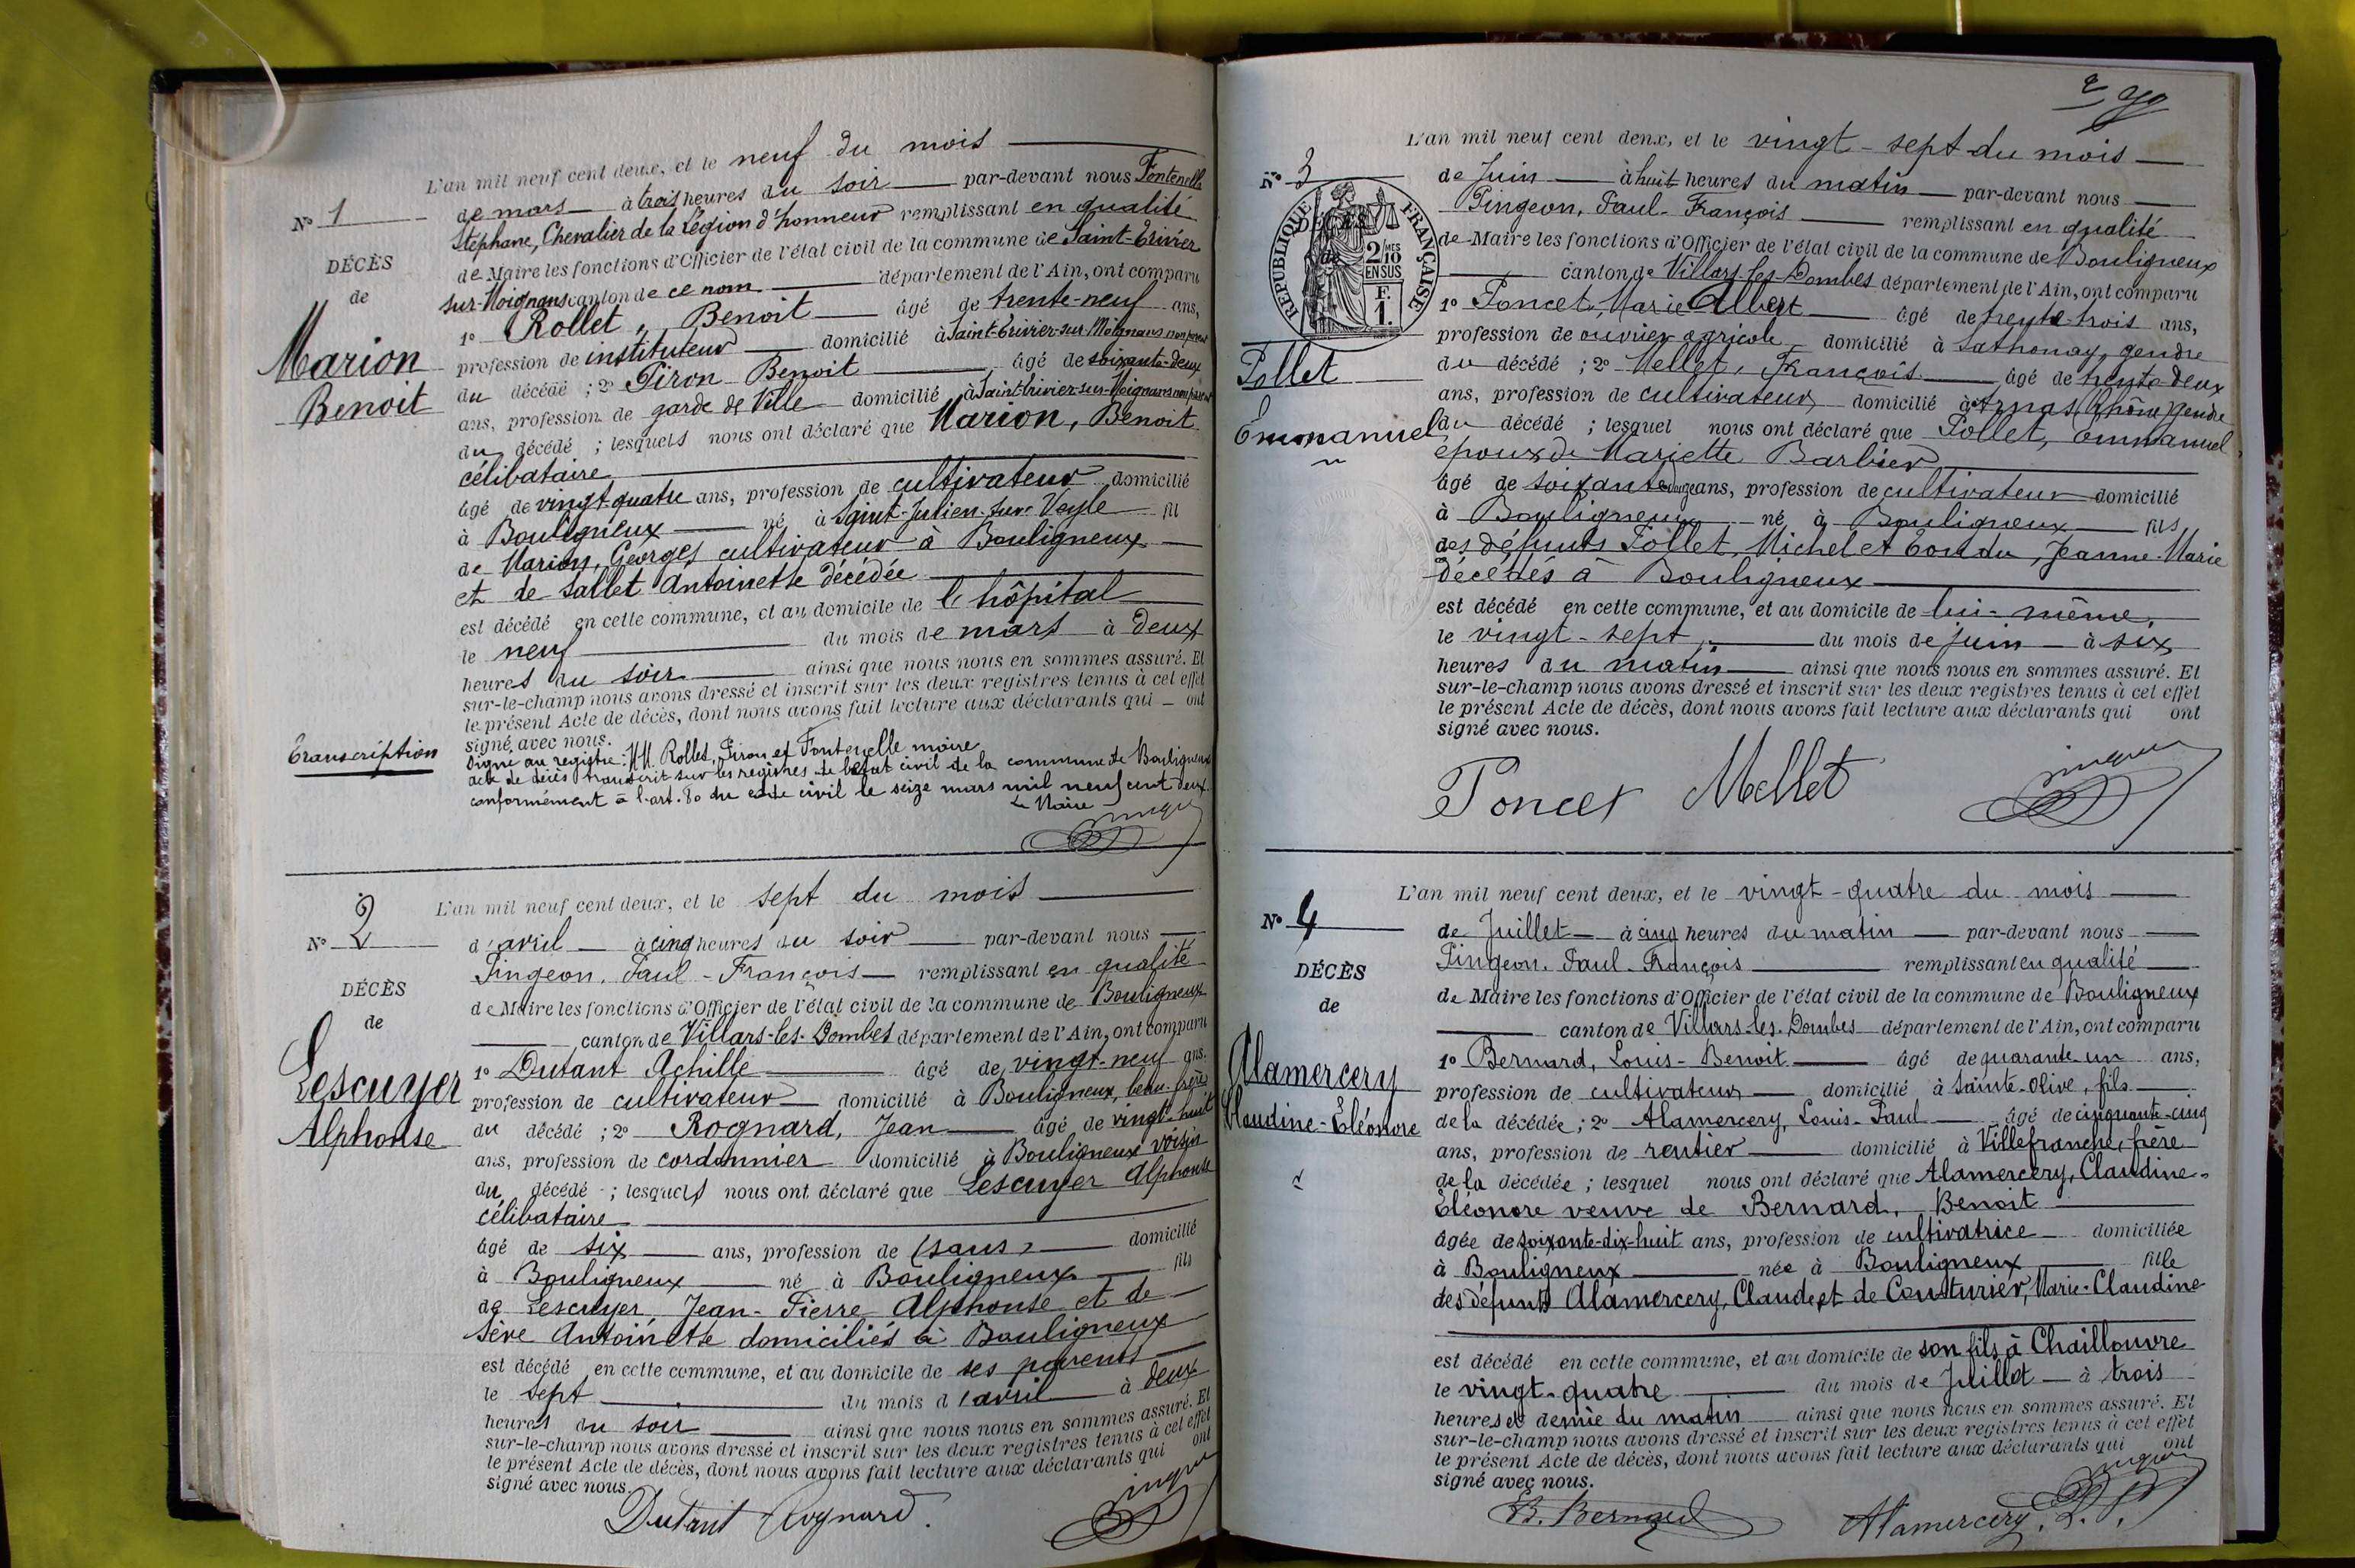 L'an mil neuf cent deux, et le neuf du mois
N° 1
de mars à trois heures du soir par-devant nous Fontenelle
Stéphane, Chevalier de la Légion d'honneur remplissant en qualité
de Maire les fonctions d'Officier de l'état civil de la commune de Saint-Trivier
DÉCÈS
de
sur-Moignans canton de ce nom département de l'Ain, ont comparu
1° Rollet, Benoit âgé de trente-neuf ans,
profession de instituteur domicilié à Saint-Trivier-sur-Moignans non parent
Marion
Benoit
du décédé ; 2° Piron Benoit âgé de soixante-deux
ans, profession de garde de Ville domicilié à Saint-Trivier-sur-Moignans non parent
du décédé ; lesquels nous ont déclaré que Marion, Benoit
célibataire
âgé de vingt-quatre ans, profession de cultivateur domicilié
à Bouligneux né à Saint-Julien-sur-Veyle fil
de Marion, Georges cultivateur à Bouligneux
et de Sallet Antoinette décédée
est décédé en cette commune, et au domicile de l'hôpital
le neuf du mois de mars à deux
heures du soir ainsi que nous nous en sommes assuré. Et
sur-le-champ nous avons dressé et inscrit sur les deux registres tenus à cet effet
le présent Acte de décès, dont nous avons fait lecture aux déclarants qui ont
signé avec nous.
Transcription
Signé au registre : MM. Rollet, Piron et Fontenelle maire
acte de décès transcrit sur les registres de l'état civil de la commune de Bouligneux
conformément à l'art. 80 du code civil le seize mars mil neuf cent deux.
Le Maire
Pingeon
L'an mil neuf cent deux, et le sept du mois
N° 2
d'avril à cinq heures du soir par-devant nous
Pingeon, Paul-François remplissant en qualité
DÉCÈS
de
de Maire les fonctions d'Officier de l'état civil de la commune de Bouligneux
canton de Villars-les-Dombes département de l'Ain, ont comparu
1° Dutant Achille âgé de vingt-neuf ans.
Lescuyer
Alphonse
profession de cultivateur domicilié à Bouligneux, beau-frère
du décédé ; 2° Rognard, Jean âgé de vingt-huit
ans, profession de cordonnier domicilié à Bouligneux voisin
du décédé ; lesquels nous ont déclaré que Lescuyer Alphonse
célibataire
âgé de six ans, profession de (sans) domicilié
à Bouligneux né à Bouligneux fils
de Lescuyer, Jean-Pierre Alphonse et de
Sève Antoinette domiciliés à Bouligneux
est décédé en cette commune, et au domicile de ses parents
le sept du mois d'avril à deux
heures du soir ainsi que nous nous en sommes assuré. Et
sur-le-champ nous avons dressé et inscrit sur les deux registres tenus à cet effet
le présent Acte de décès, dont nous avons fait lecture aux déclarants qui ont
signé avec nous.
Dutant Rognard.
Pingeon
L'an mil neuf cent deux, et le vingt-sept du mois
N° 3
de Juin à huit heures du matin par-devant nous
Pingeon, Paul-François remplissant en qualité
DÉCÈS
de
RÉPUBLIQUE FRANÇAISE
2/10 MES
EN SUS
F.
1.
de Maire les fonctions d'Officier de l'état civil de la commune de Bouligneux
canton de Villars-les-Dombes département de l'Ain, ont comparu
1° Poncet, Marie Albert âgé de trente-trois ans,
profession de ouvrier agricole domicilié à Sathonay, gendre
Pollet
Emmanuel
du décédé ; 2° Mellet, François âgé de trente-deux
ans, profession de cultivateur domicilié à Arnas (Rhône) gendre
du décédé ; lesquel nous ont déclaré que Pollet, Emmanuel
époux de Mariette Barbier
âgé de soixante ans, profession de cultivateur domicilié
à Bouligneux né à Bouligneux fils
des défunts Pollet, Michel et Jeanne-Marie
décédés à Bouligneux
est décédé en cette commune, et au domicile de lui-même.
le vingt-sept du mois de juin à six
heures du matin ainsi que nous nous en sommes assuré. Et
sur-le-champ nous avons dressé et inscrit sur les deux registres tenus à cet effet
le présent Acte de décès, dont nous avons fait lecture aux déclarants qui ont
signé avec nous.
Poncet Mellet Pingeon
L'an mil neuf cent deux, et le vingt-quatre du mois
N° 4
de Juillet à cinq heures du matin par-devant nous
Pingeon, Paul-François remplissant en qualité
DÉCÈS
de
de Maire les fonctions d'Officier de l'état civil de la commune de Bouligneux
canton de Villars-les-Dombes département de l'Ain, ont comparu
1° Bernard, Louis-Benoit âgé de quarante-un ans,
Alamercery
Claudine-Éléonore
profession de cultivateur domicilié à Sainte-Olive, fils
de la décédée ; 2° Alamercery, Louis-Paul âgé de cinquante-cinq
ans, profession de rentier domicilié à Villefranche, frère
de la décédée ; lesquel nous ont déclaré que Alamercery, Claudine-
Éléonore veuve de Bernard, Benoit
âgée de soixante-dix-huit ans, profession de cultivatrice domiciliée
à Bouligneux née à Bouligneux fille
des défunts Alamercery, Claude et de Couturier, Marie-Claudine
est décédé en cette commune, et au domicile de son fils à Chaillouvre
le vingt-quatre du mois de Juillet à trois
heures et demie du matin ainsi que nous nous en sommes assuré. Et
sur-le-champ nous avons dressé et inscrit sur les deux registres tenus à cet effet
le présent Acte de décès, dont nous avons fait lecture aux déclarants qui ont
signé avec nous.
B. Bernard Alamercery. L. P. Pingeon